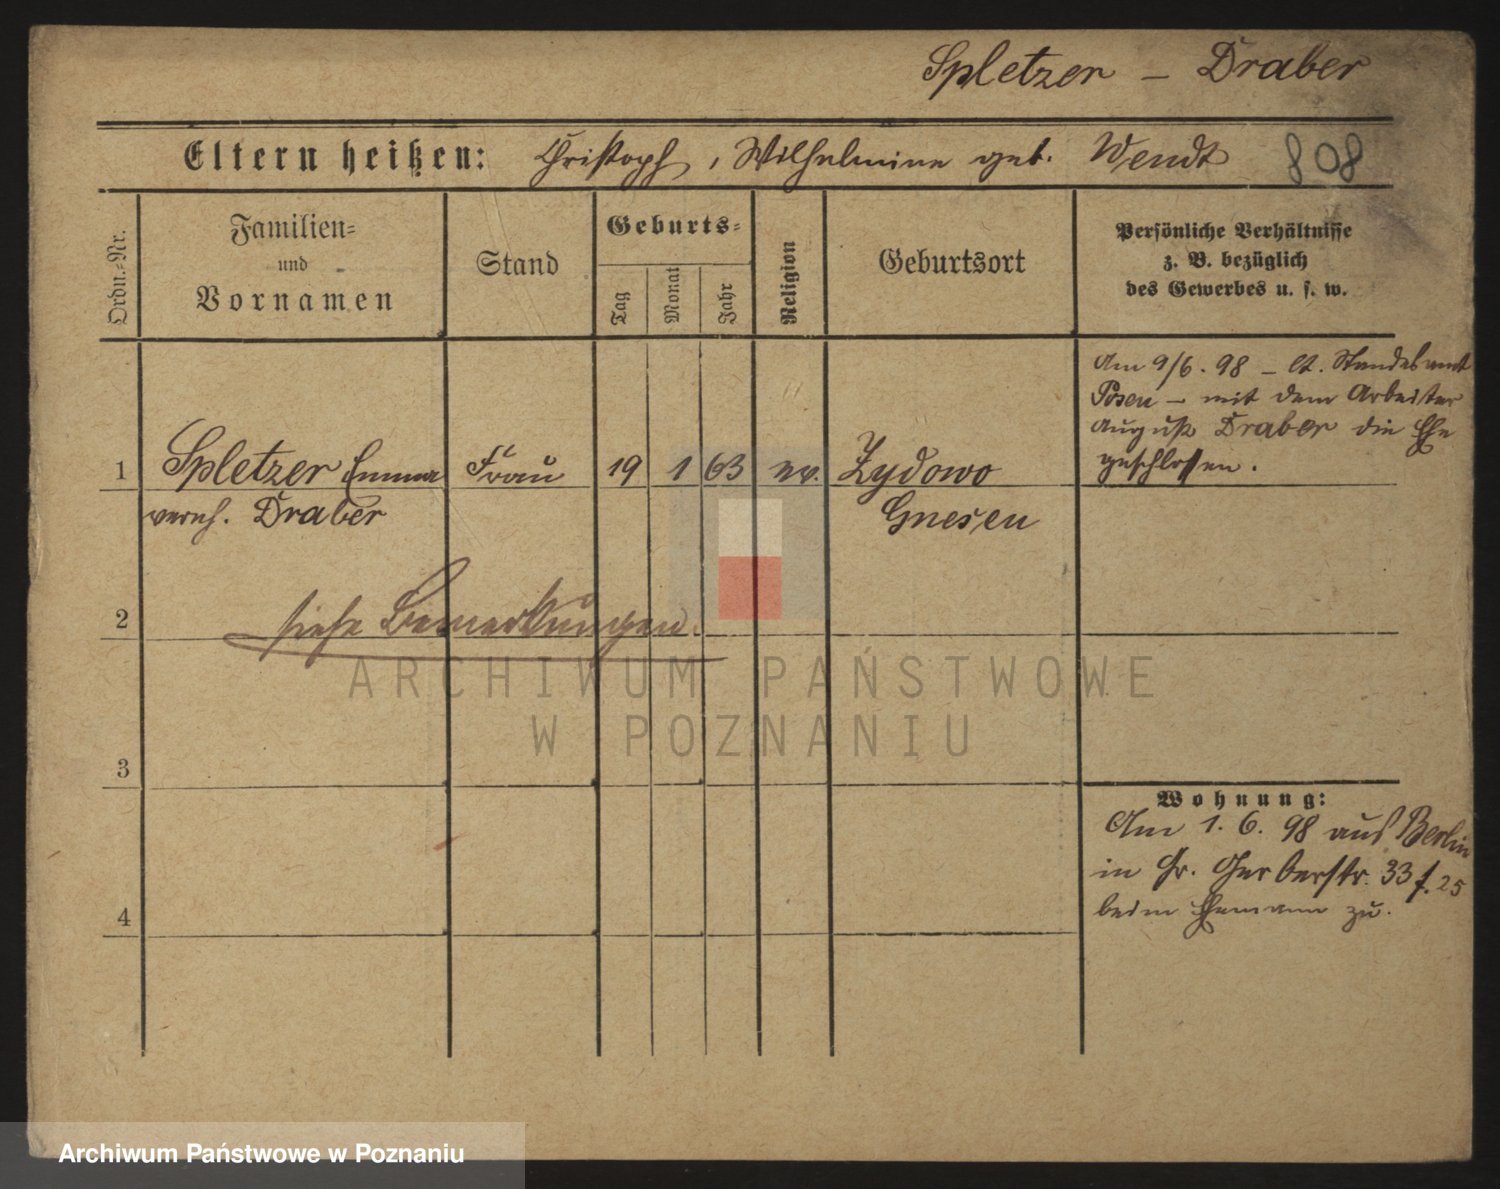 Spletzer – Draber
Eltern heißen: Christoph, Wilhelmine geb. Wendt 808
Ordn.-Nr.
Familien-
und
Vornamen
Stand
Geburts-
Tag
Monat
Jahr
Religion
Geburtsort
Persönliche Verhältnisse
z. B. bezüglich
des Gewerbes u. s. w.
Am 9/6. 98 – lt. Standesamt
Posen – mit dem Arbeiter
August Draber die Ehe
geschlossen.
1 Spletzer Emma Frau 19 1 63 ev. Zydowo
vereh. Draber Gnesen
2 siehe Bemerkungen.
3
Wohnung:
Am 1. 6. 98 aus Berlin
in Gr. Gerberstr. 33 f. 25
beim Ehemann zu.
4
ARCHIWUM PAŃSTWOWE
W POZNANIU
Archiwum Państwowe w Poznaniu